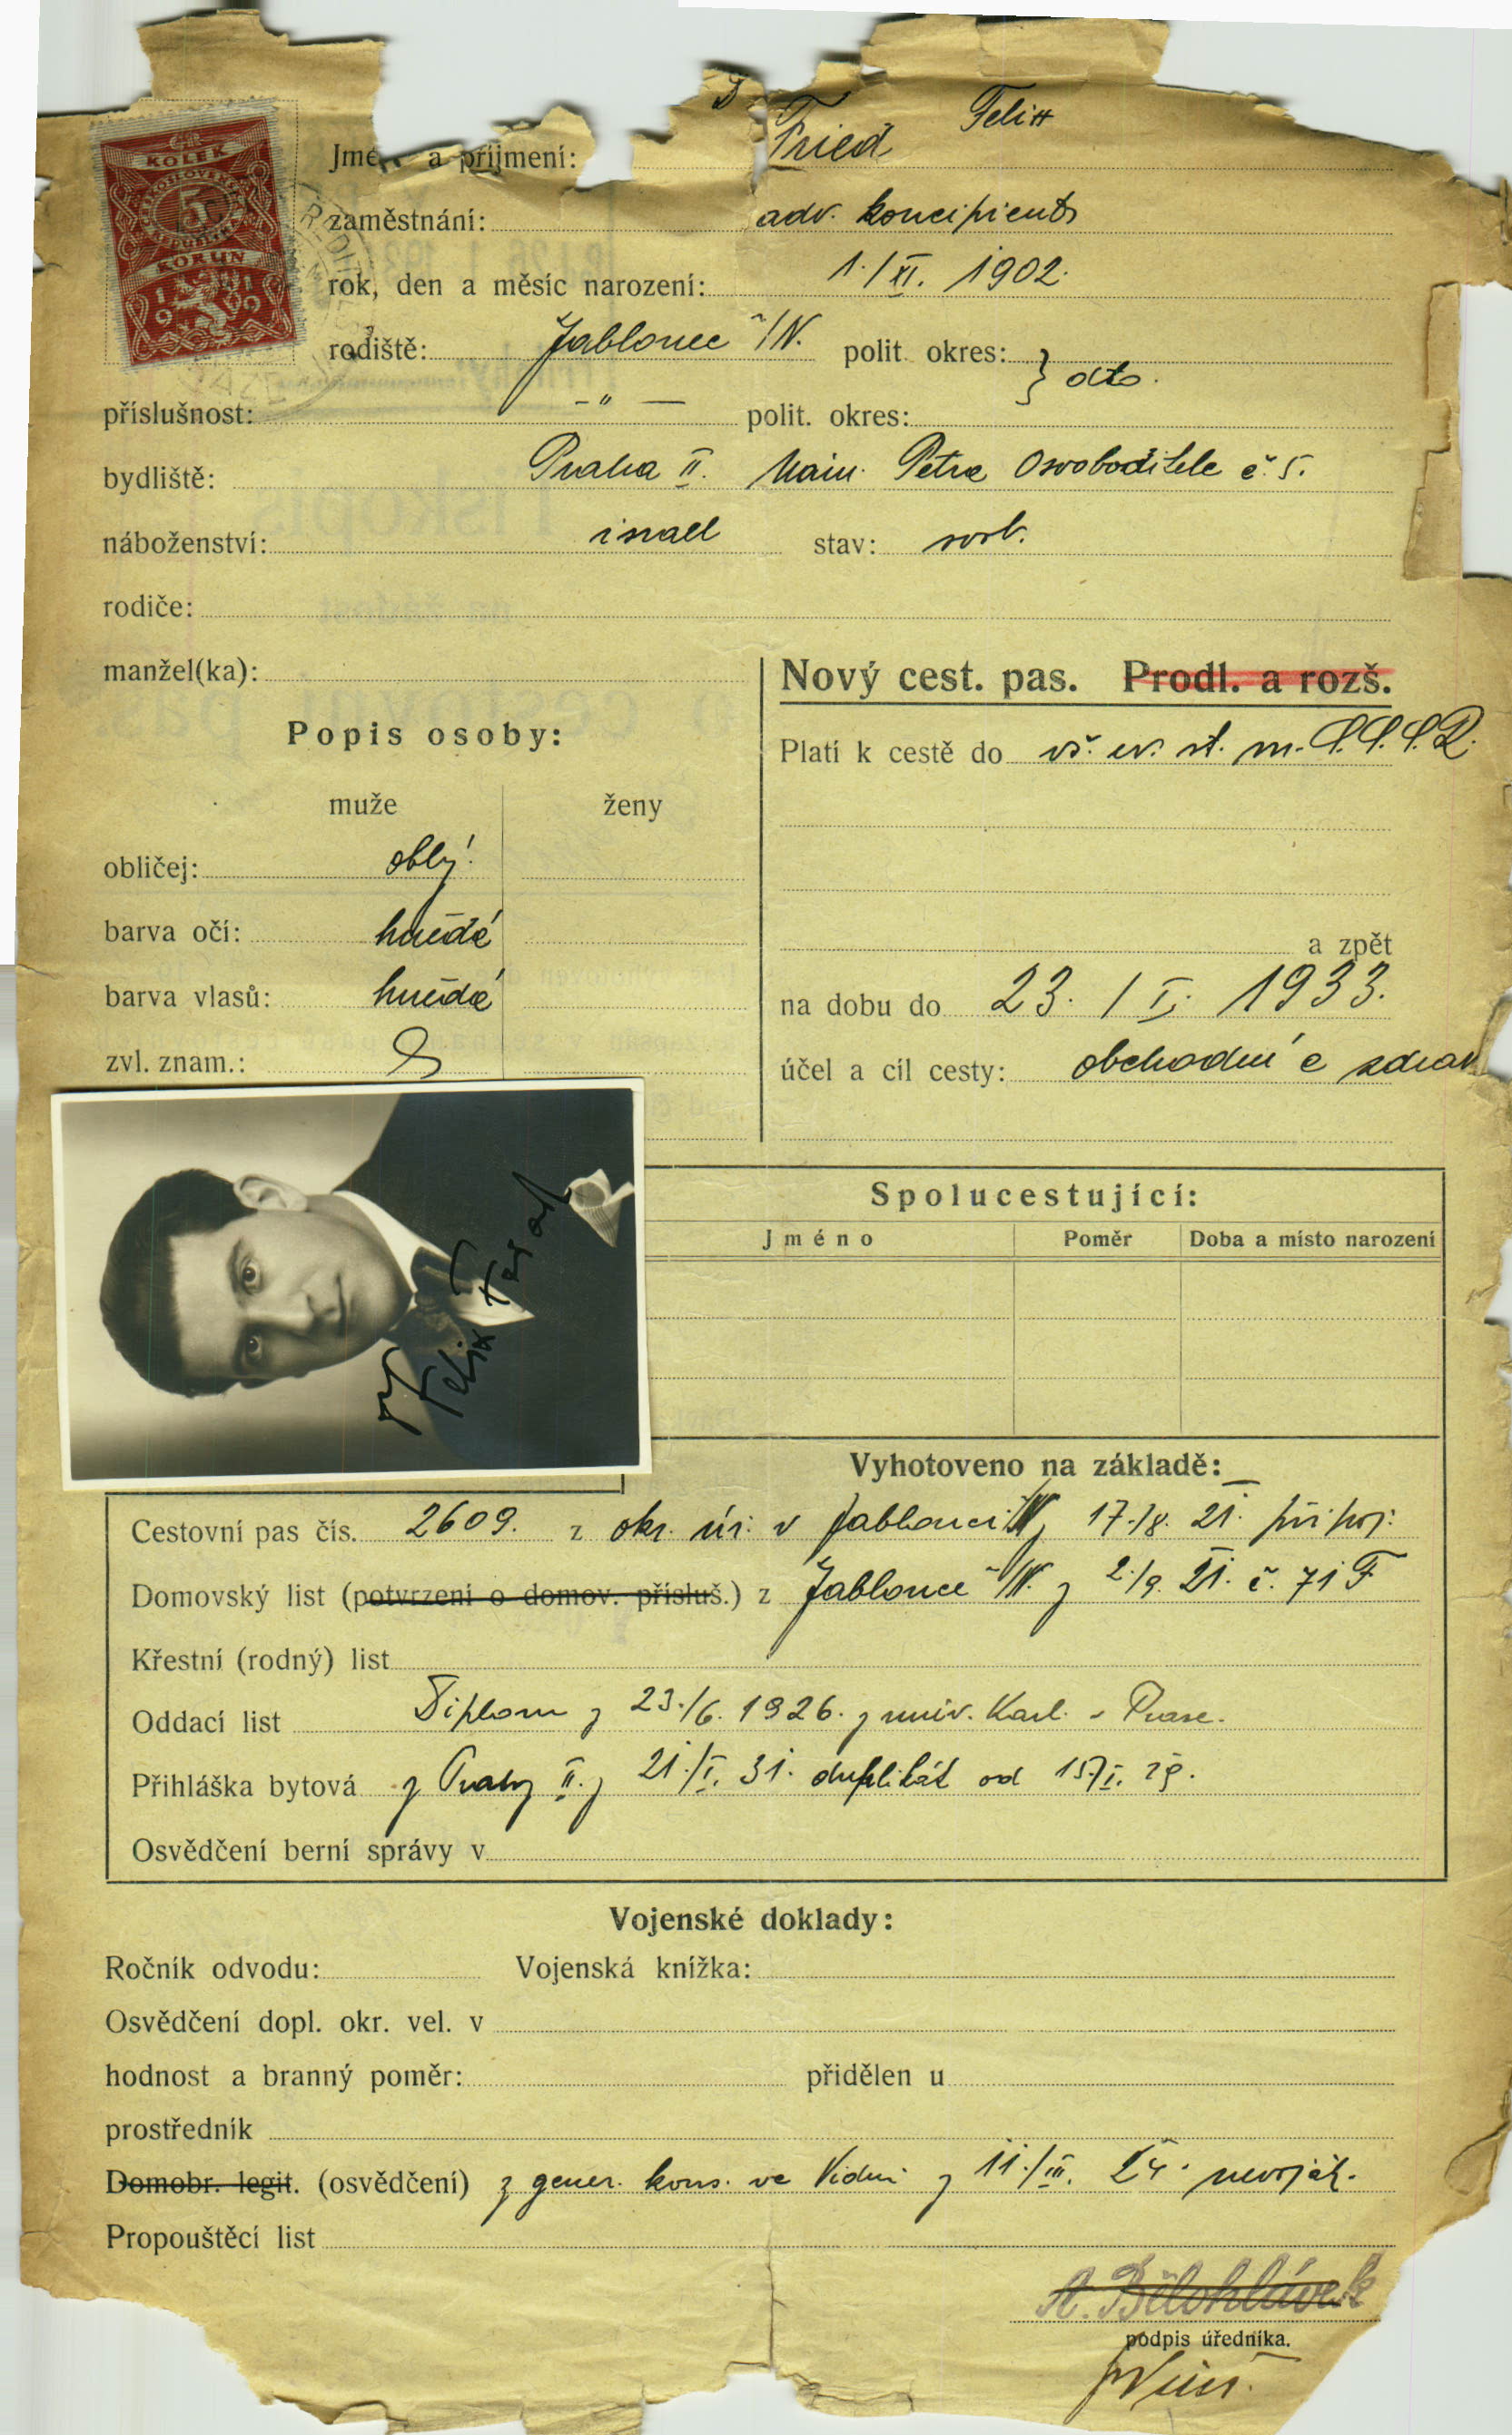 KOLEK
5
KORUN
1919
Jmé a příjmení: Fried Felix
zaměstnání: adv. koncipient
rok, den a měsíc narození: 1./XI. 1902.
rodiště: Jablonec n/N. polit. okres: } dto.
příslušnost: -"- polit. okres:
bydliště: Praha II. Petra Osvoboditele č. 5.
náboženství: israel stav: svob.
rodiče:
manžel(ka):
Nový cest. pas. Prodl. a rozš.
Popis osoby:
Platí k cestě do vš. ev. st. m. S.S.S.R.
muže ženy
obličej: oblý
barva očí: hnědé
a zpět
barva vlasů: hnědé
na dobu do 23. / I. 1933.
zvl. znam.:
účel a cíl cesty: obchodní a zdrav
Felix
Spolucestující:
Jméno Poměr Doba a místo narození
Vyhotoveno na základě:
Cestovní pas čís. 2609. z okr. úř. v Jablonci n/N z 17./8. 21. při poj:
Domovský list (potvrzení o domov. přísluš.) z Jablonce n/N. z 2./9. 21. č. 71 F
Křestní (rodný) list
Oddací list Diplom z 23./6. 1926. z univ. Karl. v Praze.
Přihláška bytová z Prahy II. z 21./I. 31. duplikát od 15/I. 29.
Osvědčení berní správy v
Vojenské doklady:
Ročník odvodu: Vojenská knížka:
Osvědčení dopl. okr. vel. v
hodnost a branný poměr: přidělen u
prostředník
Domobr. legit. (osvědčení) z gener. kons. ve Vídni z 11./III. 24. nevoják.
Propouštěcí list
A. Bělohlávek
podpis úředníka.